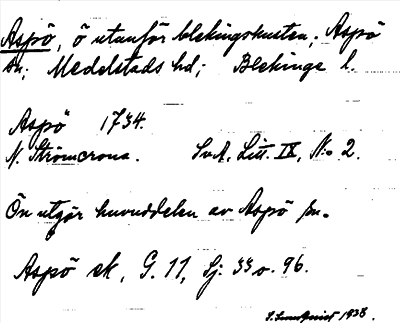 Aspö, ö utanför blekingskusten; Aspö
sn. Medelstads hd; Blekinge l.
Aspö 1734.
N. Strömcrona. SvA, Litt. IX, No 2.
Ön utgör huvuddelen av Aspö sn.
Aspö sk, G. 11, Sj: 33 o. 96.
1938.